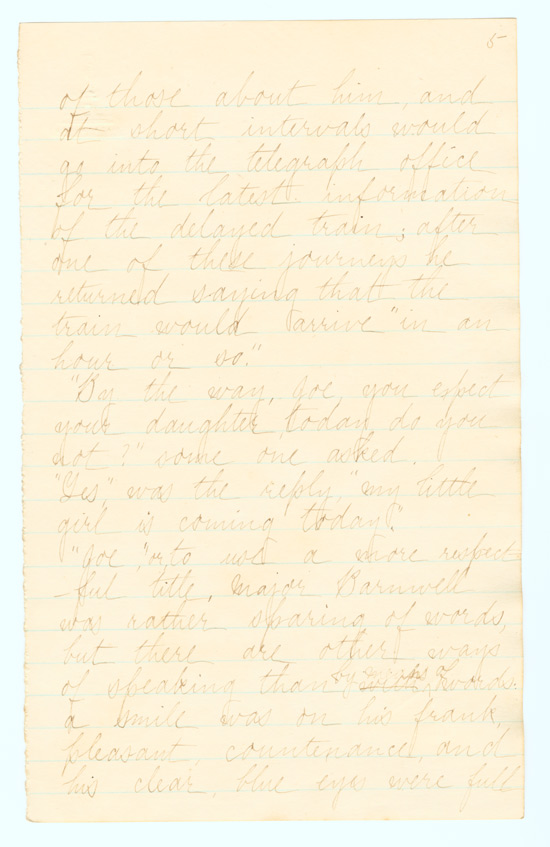 5
of those about him, and
at short intervals would
go into the telegraph office
for the latest information
of the delayed train; after
one of these journeys he
returned saying that the
train would arrive "in an
hour or so."
"By the way, Joe, you expect
your daughter today, do you
not?" some one asked.
"Yes," was the reply, "my little
girl is coming today."
"Joe", or to use a more respect
ful title, Major Barnwell
was rather sparing of words,
but there are other ways
of speaking than by means of words.
a smile was on his frank,
pleasant, countenance, and
his clear, blue eyes were full